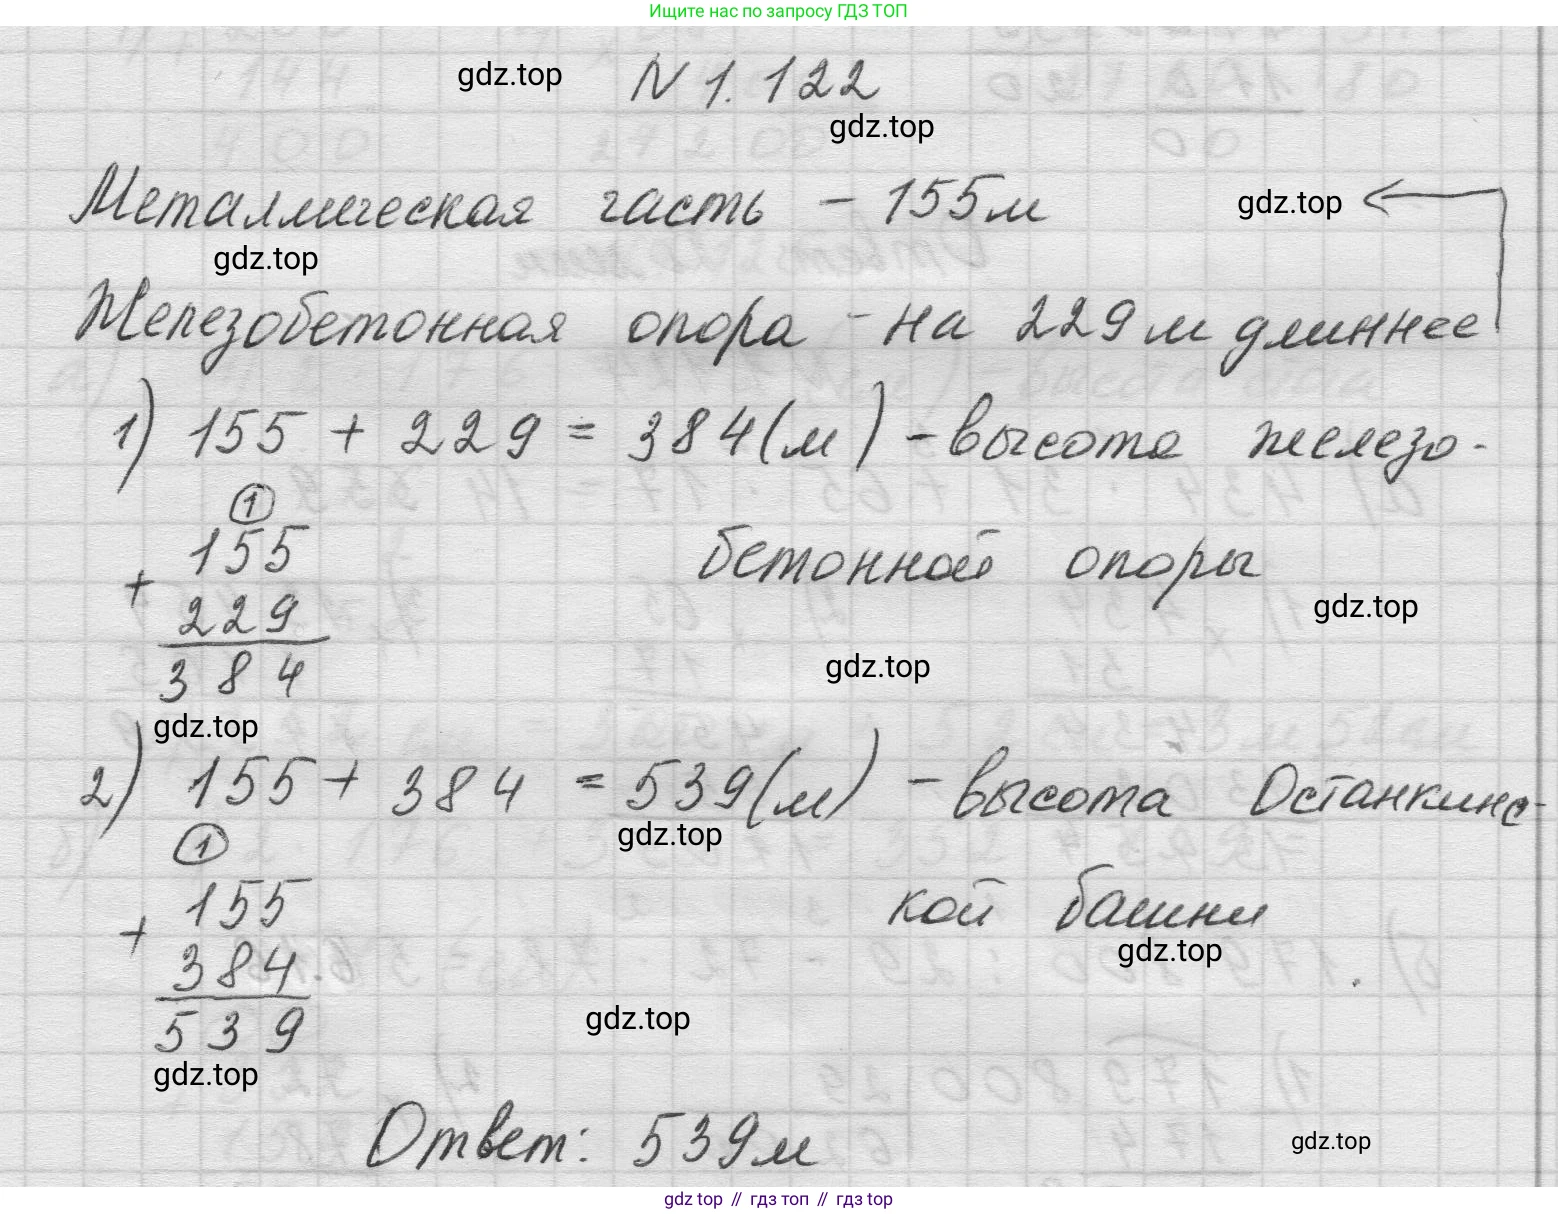 Ищите нас по запросу ГДЗ ТОП
gdz.top
N 1.122
gdz.top
Металлическая часть – 155м
gdz.top
gdz.top
Железобетонная опора – на 229 м длиннее
1) 155 + 229 = 384 (м) – высота железо-
1
155
бетонной опоры
+
229
gdz.top
384
gdz.top
gdz.top
2) 155 + 384 = 539 (м) – высота Останкинс-
gdz.top
1
155
кой башни
+
gdz.top
384
539
gdz.top
gdz.top
Ответ: 539м
gdz.top
gdz top // гдз топ // гдз top